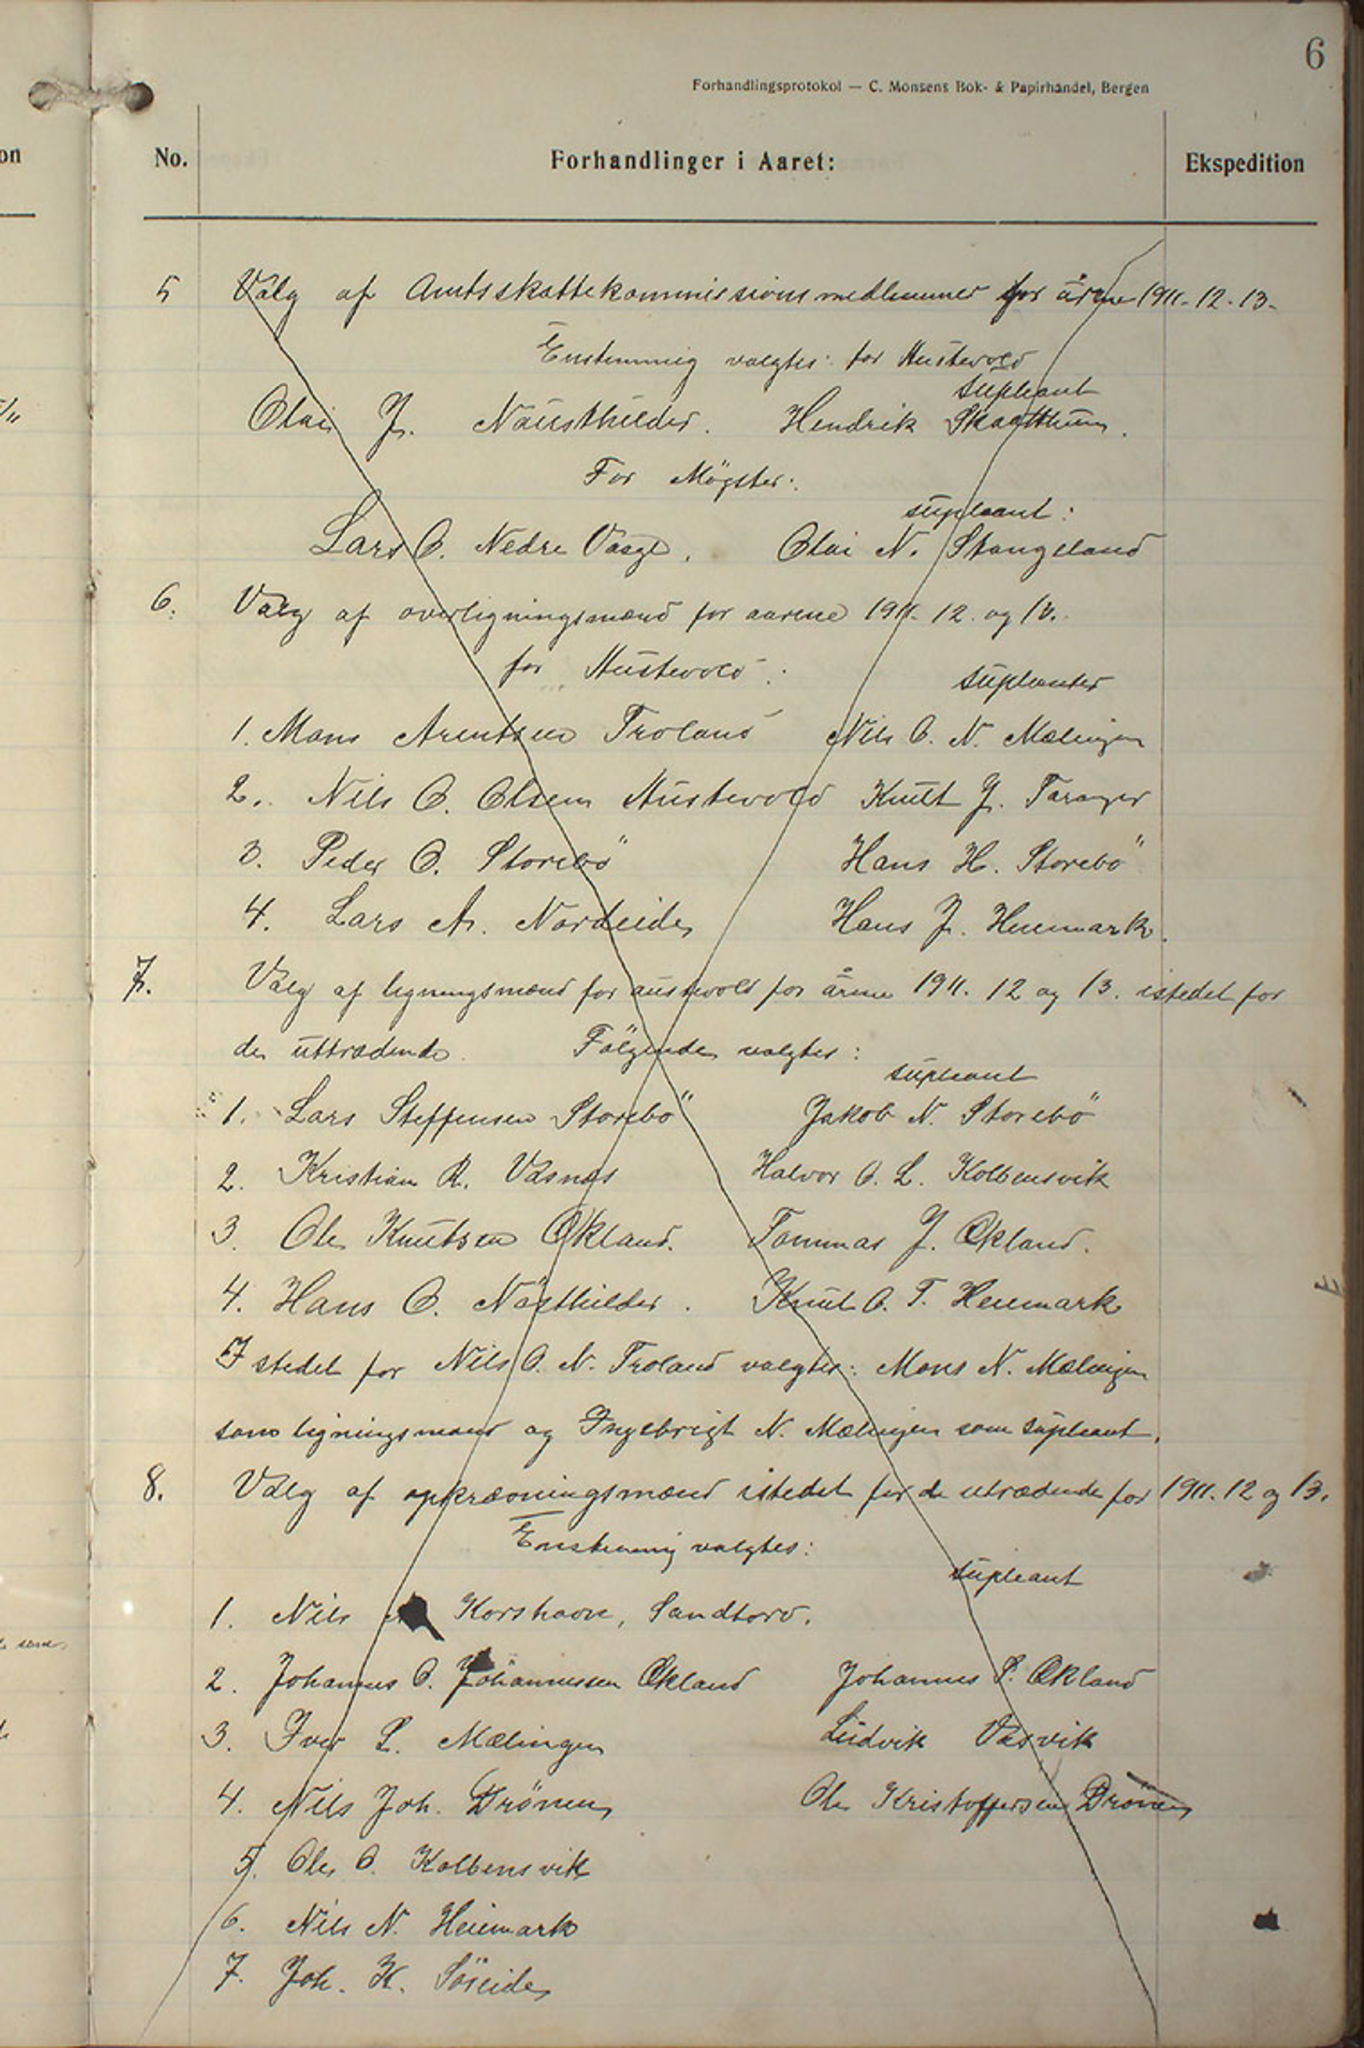 6
Forhandlingsprotokol — C. Monsens Bok- & Papirhandel, Bergen
on
No. Forhandlinger i Aaret: Ekspedition
5 Valg af Amtsskattekommissionsmedlemmer for årene 1911-12-13.
Enstemmig valgtes: for Austevold
supleant
Olai J. Nausthilder. Hendrik Skaatthum.
For Møgster:
supleant:
Lars O. Nedre Vaage. Olai N. Stangeland
6. Valg af overligningsmænd for aarene 1911-12 og 13.
for Austevold: suplanter
1. Mons Arentsen Troland Nils O. N. Mælingen
2. Nils O. Olsen Austevold Knut J. Taranger
3. Peder O. Storebö Hans H. Storebö
4. Lars A. Nordeide Hans J. Heiemark.
7. Valg af ligningsmænd for austevold for årene 1911. 12 og 13. istedet for
de uttrædende. Følgende valgtes:
supleant
1. Lars Steffensen Storebö Jakob N. Storebö
2. Kristian R. Vasnes Halvor O. L. Kolbensvik
3. Ole Knutsen Økland. Tommas J. Økland.
4. Hans O. Nåsthilder. Knut O. T. Heiemark
I stedet for Nils O. N. Troland valgtes: Mons N. Mælingen
som ligningsmand og Ingebrigt N. Mælingen som supleant.
8. Valg af opkrævningsmænd istedet for de utrædende for 1911. 12 og 13.
Enstemmig valgtes:
supleant
1. Nils Korshavn, Sandtorv.
2. Johannes O. Johannessen Økland Johannes P. Økland
3. Iver L. Mælingen Ludvik Vasvik
4. Nils Joh. Drönen Ole Kristoffersen Drönen
5. Ole O. Kolbensvik
6. Nils N. Heiemark
7. Joh. K. Söreide